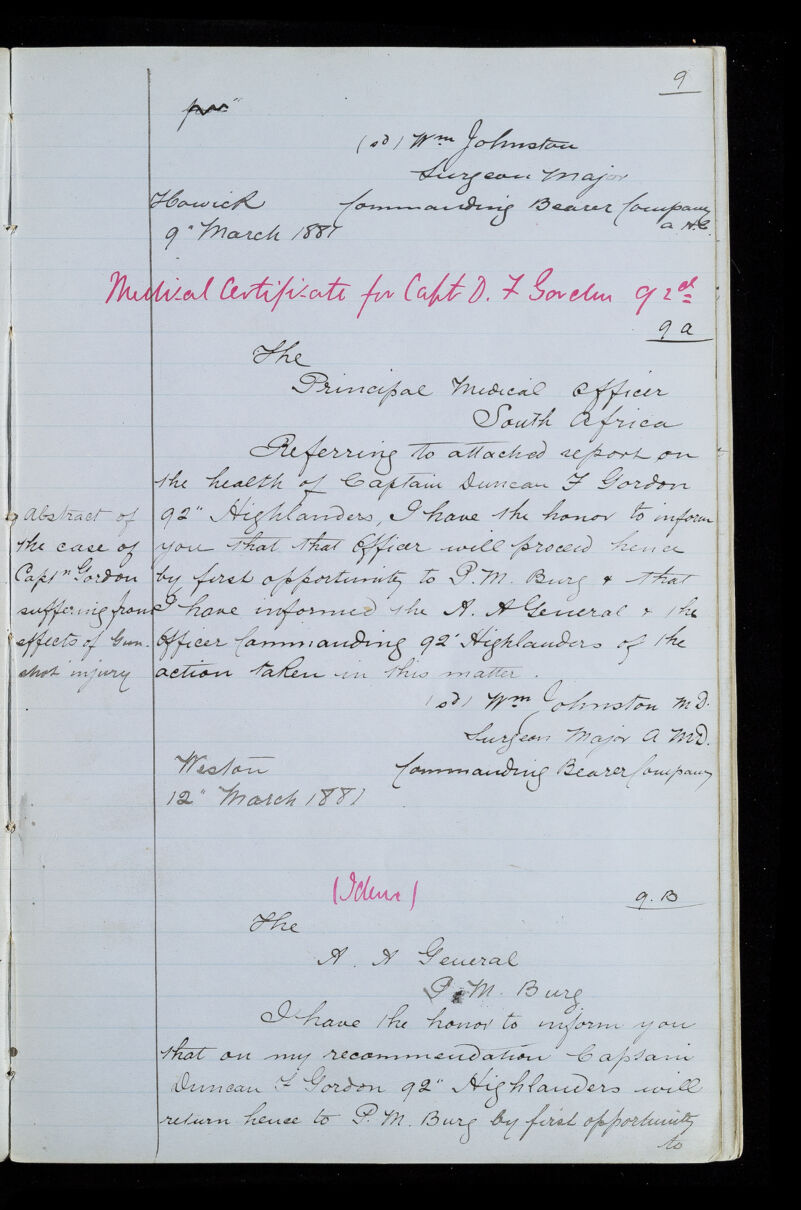 9
(sd) Wm Johnston
Surgeon Major
Howick Commanding Bearer Company
9" March 1881 A.H.C.
Medical Certificate for Capt D. F Gordon 92nd
9a
The
Principal Medical Officer
South Africa
Referring to attached report on
the health of Captain Duncan F Gordon
92" Highlanders, I have the honor to inform
you that that Officer will proceed hence
by first opportunity to P.M. Burg & that
I have informed the A. A General & the
Officer Commanding 92" Highlanders of the
action taken in this matter.
Abstract of
the case of
Captn Gordon
suffering from
effects of Gun.
shot injury
(sd) Wm Johnston M.D.
Surgeon Major A M D.
Weston Commanding Bearer Company
12" March 1881
(Idem)
9.B
The
A. A General
P. M. Burg
I have the honor to inform you
that on my recommendation Captain
Duncan F Gordon 92" Highlanders will
return hence to P. M. Burg by first opportunity
to